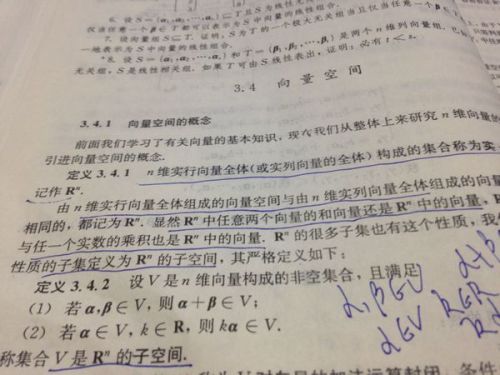 6. 设 S={α₁,α₂,…,αₛ}⊆T且S为线性无
仅当任意一个β∈T都可以表示为S中向量的线性组合.
7. 设向量组S⊆T. 证明, S为T的一个极大无关组当且仅当任意一个β
一地表示为S中向量的线性组合.
*8. 设S={α₁,α₂,…,αₛ}和T={β₁,β₂,…,βₜ}是两个n维列向量组.
无关组, S是线性相关组. 如果T可由S线性表出, 证明: 必有t<s.
3.4 向量空间
3.4.1 向量空间的概念
前面我们学习了有关向量的基本知识, 现在我们从整体上来研究n维向量的
引进向量空间的概念.
定义 3.4.1 n维实行向量全体(或实列向量的全体)构成的集合称为实
记作Rⁿ.
由n维实行向量全体组成的向量空间与由n维实列向量全体组成的向量
相同的, 都记为Rⁿ. 显然Rⁿ中任意两个向量的和向量还是Rⁿ中的向量, R
与任一个实数的乘积也是Rⁿ中的向量. Rⁿ的很多子集也有这个性质, 我
性质的子集定义为Rⁿ的子空间, 其严格定义如下:
定义 3.4.2 设V是n维向量构成的非空集合, 且满足
(1) 若α,β∈V, 则α+β∈V;
(2) 若α∈V, k∈R, 则kα∈V.
称集合V是Rⁿ的子空间.
α,β∈V α+β
α∈V k∈R